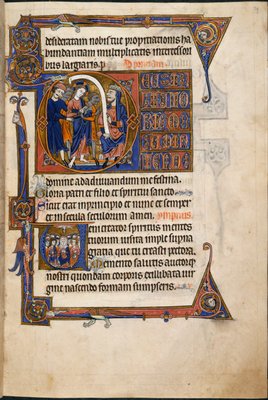 desideratam nobis tue propitiationis ha
bundantiam multiplicatis intercessor
ibus largiaris. p
TENDE
domine ad adiuuandum me festina.
Gloria patri et filio et spiritui sancto.
Sicut erat in principio et nunc et semper
et in secula seculorum amen. ympnus
Veni creator spiritus mentes
tuorum uisita imple superna
gratia que tu creasti pectora.
Memento salutis auctor q
nostri quondam corporis ex illibata uir
gine nascendo formam sumpseris.